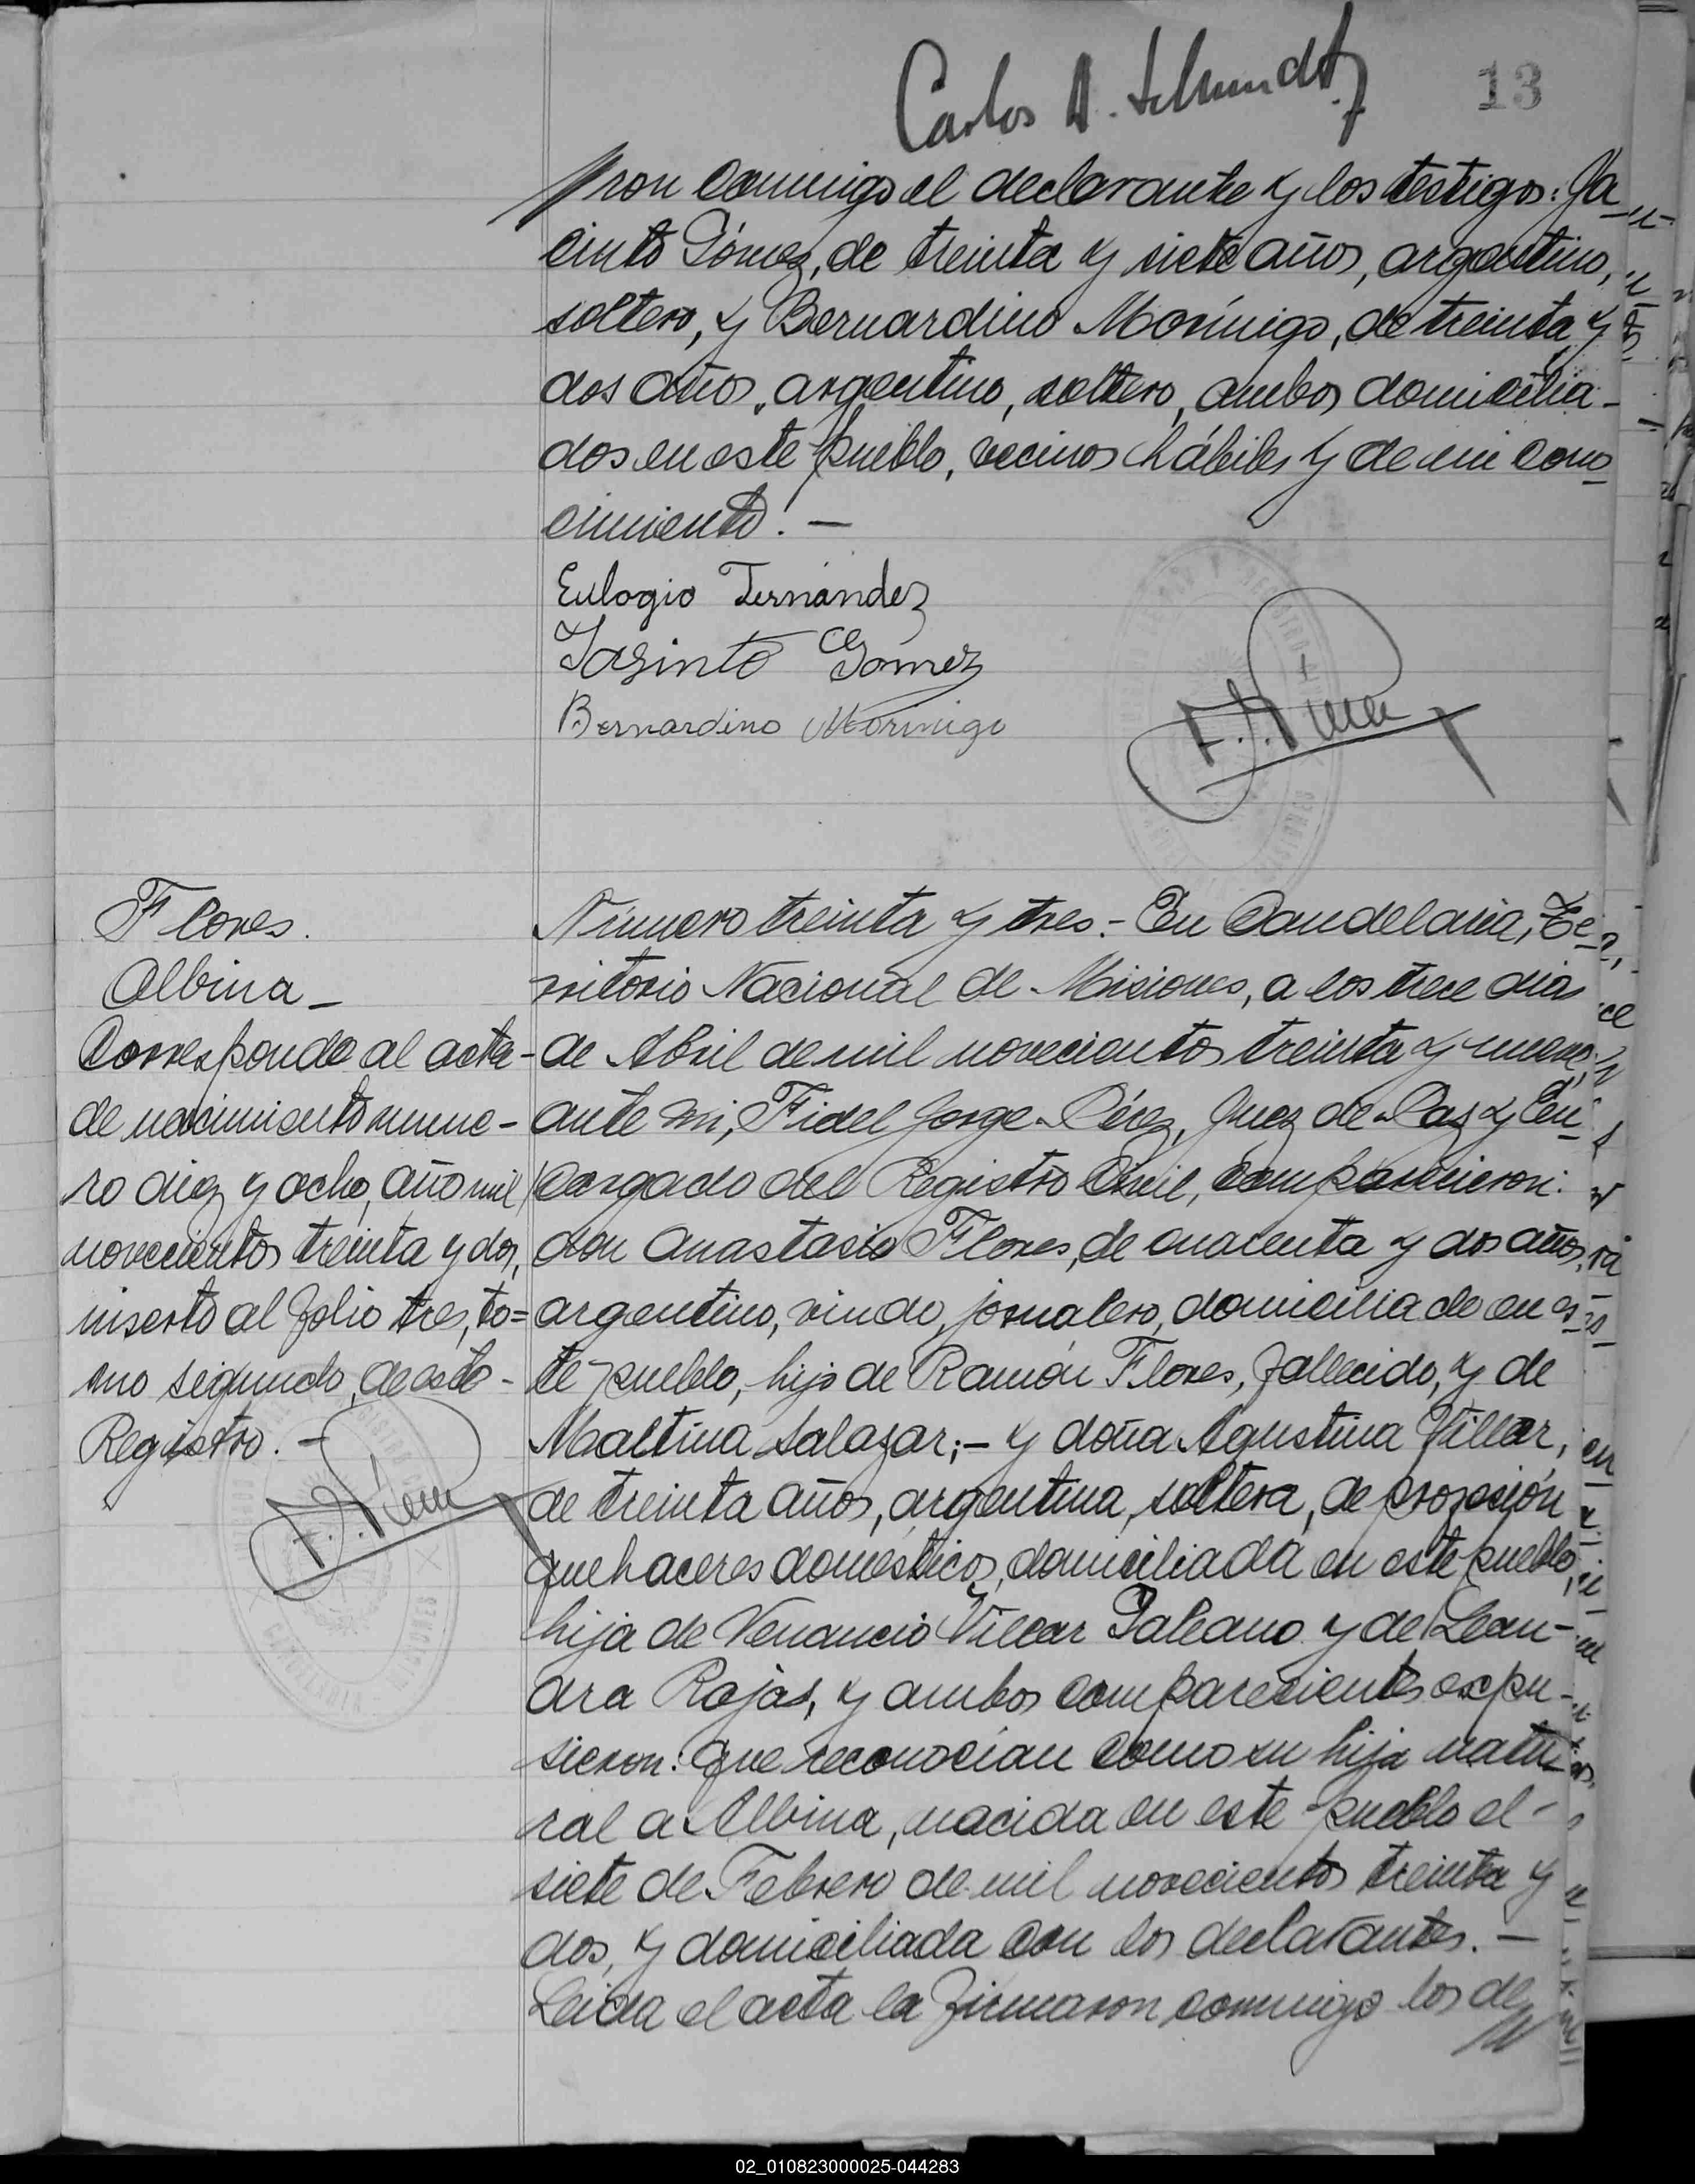 Carlos A. Schmidt
13
ron conmigo el declarante y los testigos: Ja_
cinto Gómez, de treinta y siete años, argentino,
soltero, y Bernardino Morínigo, de treinta y
dos años, argentino, soltero, ambos domicilia-
dos en este pueblo, vecinos hábiles y de mi cono_
cimiento. —
Eulogio Fernández
Jasinto Gómez
Bernardino Morinigo
Flores.
Albina —
Corresponde al acta
de nacimiento núme-
ro diez y ocho, año mil
novecientos treinta y dos,
inserto al folio tres, to=
mo segundo, de este
Registro. —
Número treinta y tres.- En Candelaria, Te_
rritorio Nacional de Misiones, a los trece dias
de Abril de mil novecientos treinta y nueve,
ante mi, Fidel Jorge Pérez, Juez de Paz y En_
cargado del Registro Civil, comparecieron:
don Anastasio Flores, de cuarenta y dos años,
argentino, viudo, jornalero, domiciliado en es_
te pueblo, hijo de Ramón Flores, fallecido, y de
Maltina Salazar;— y doña Agustina Villar,
de treinta años, argentina, soltera, de profesión
quehaceres domésticos, domiciliada en este pueblo,
hija de Venancio Villar Galeano y de Lean-
dra Rojas, y ambos comparecientes expu-
sieron: que reconocían como su hija natu_
ral a Albina, nacida en este pueblo el
siete de Febrero de mil novecientos treinta y
dos, y domiciliada con los declarantes. —
Leida el acta la firmaron conmigo los de
02_010823000025-044283